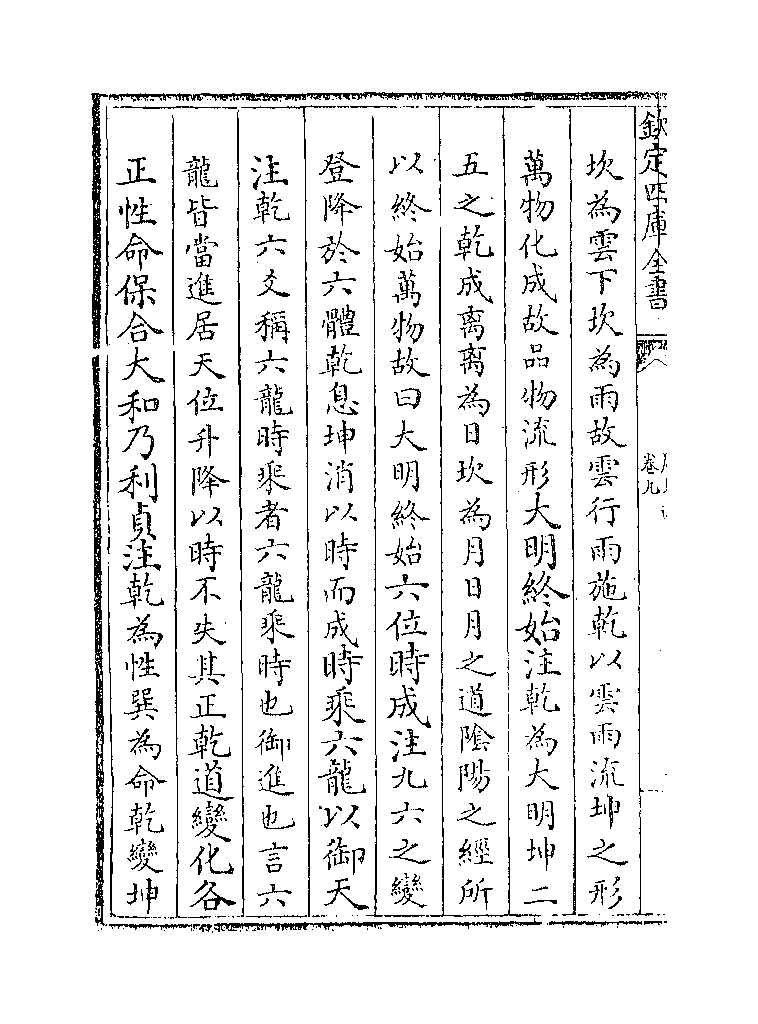 欽定四庫全書
卷九
坎為雲下坎為雨故雲行雨施乾以雲雨流坤之形
萬物化成故品物流形大明終始注乾為大明坤二
五之乾成离离為日坎為月日月之道隂陽之經所
以終始萬物故曰大明終始六位時成注九六之變
登降於六體乾息坤消以時而成時乘六龍以御天
注乾六爻稱六龍時乘者六龍乘時也御進也言六
龍皆當進居天位升降以時不失其正乾道變化各
正性命保合大和乃利貞注乾為性巽為命乾變坤